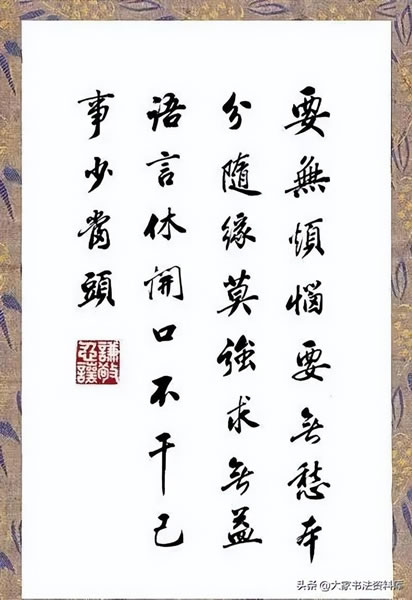 要無煩惱要无愁本
分隨緣莫強求无益
语言休開口不干己
事少當頭
謙敬
忍讓
头条 @大家书法资料库